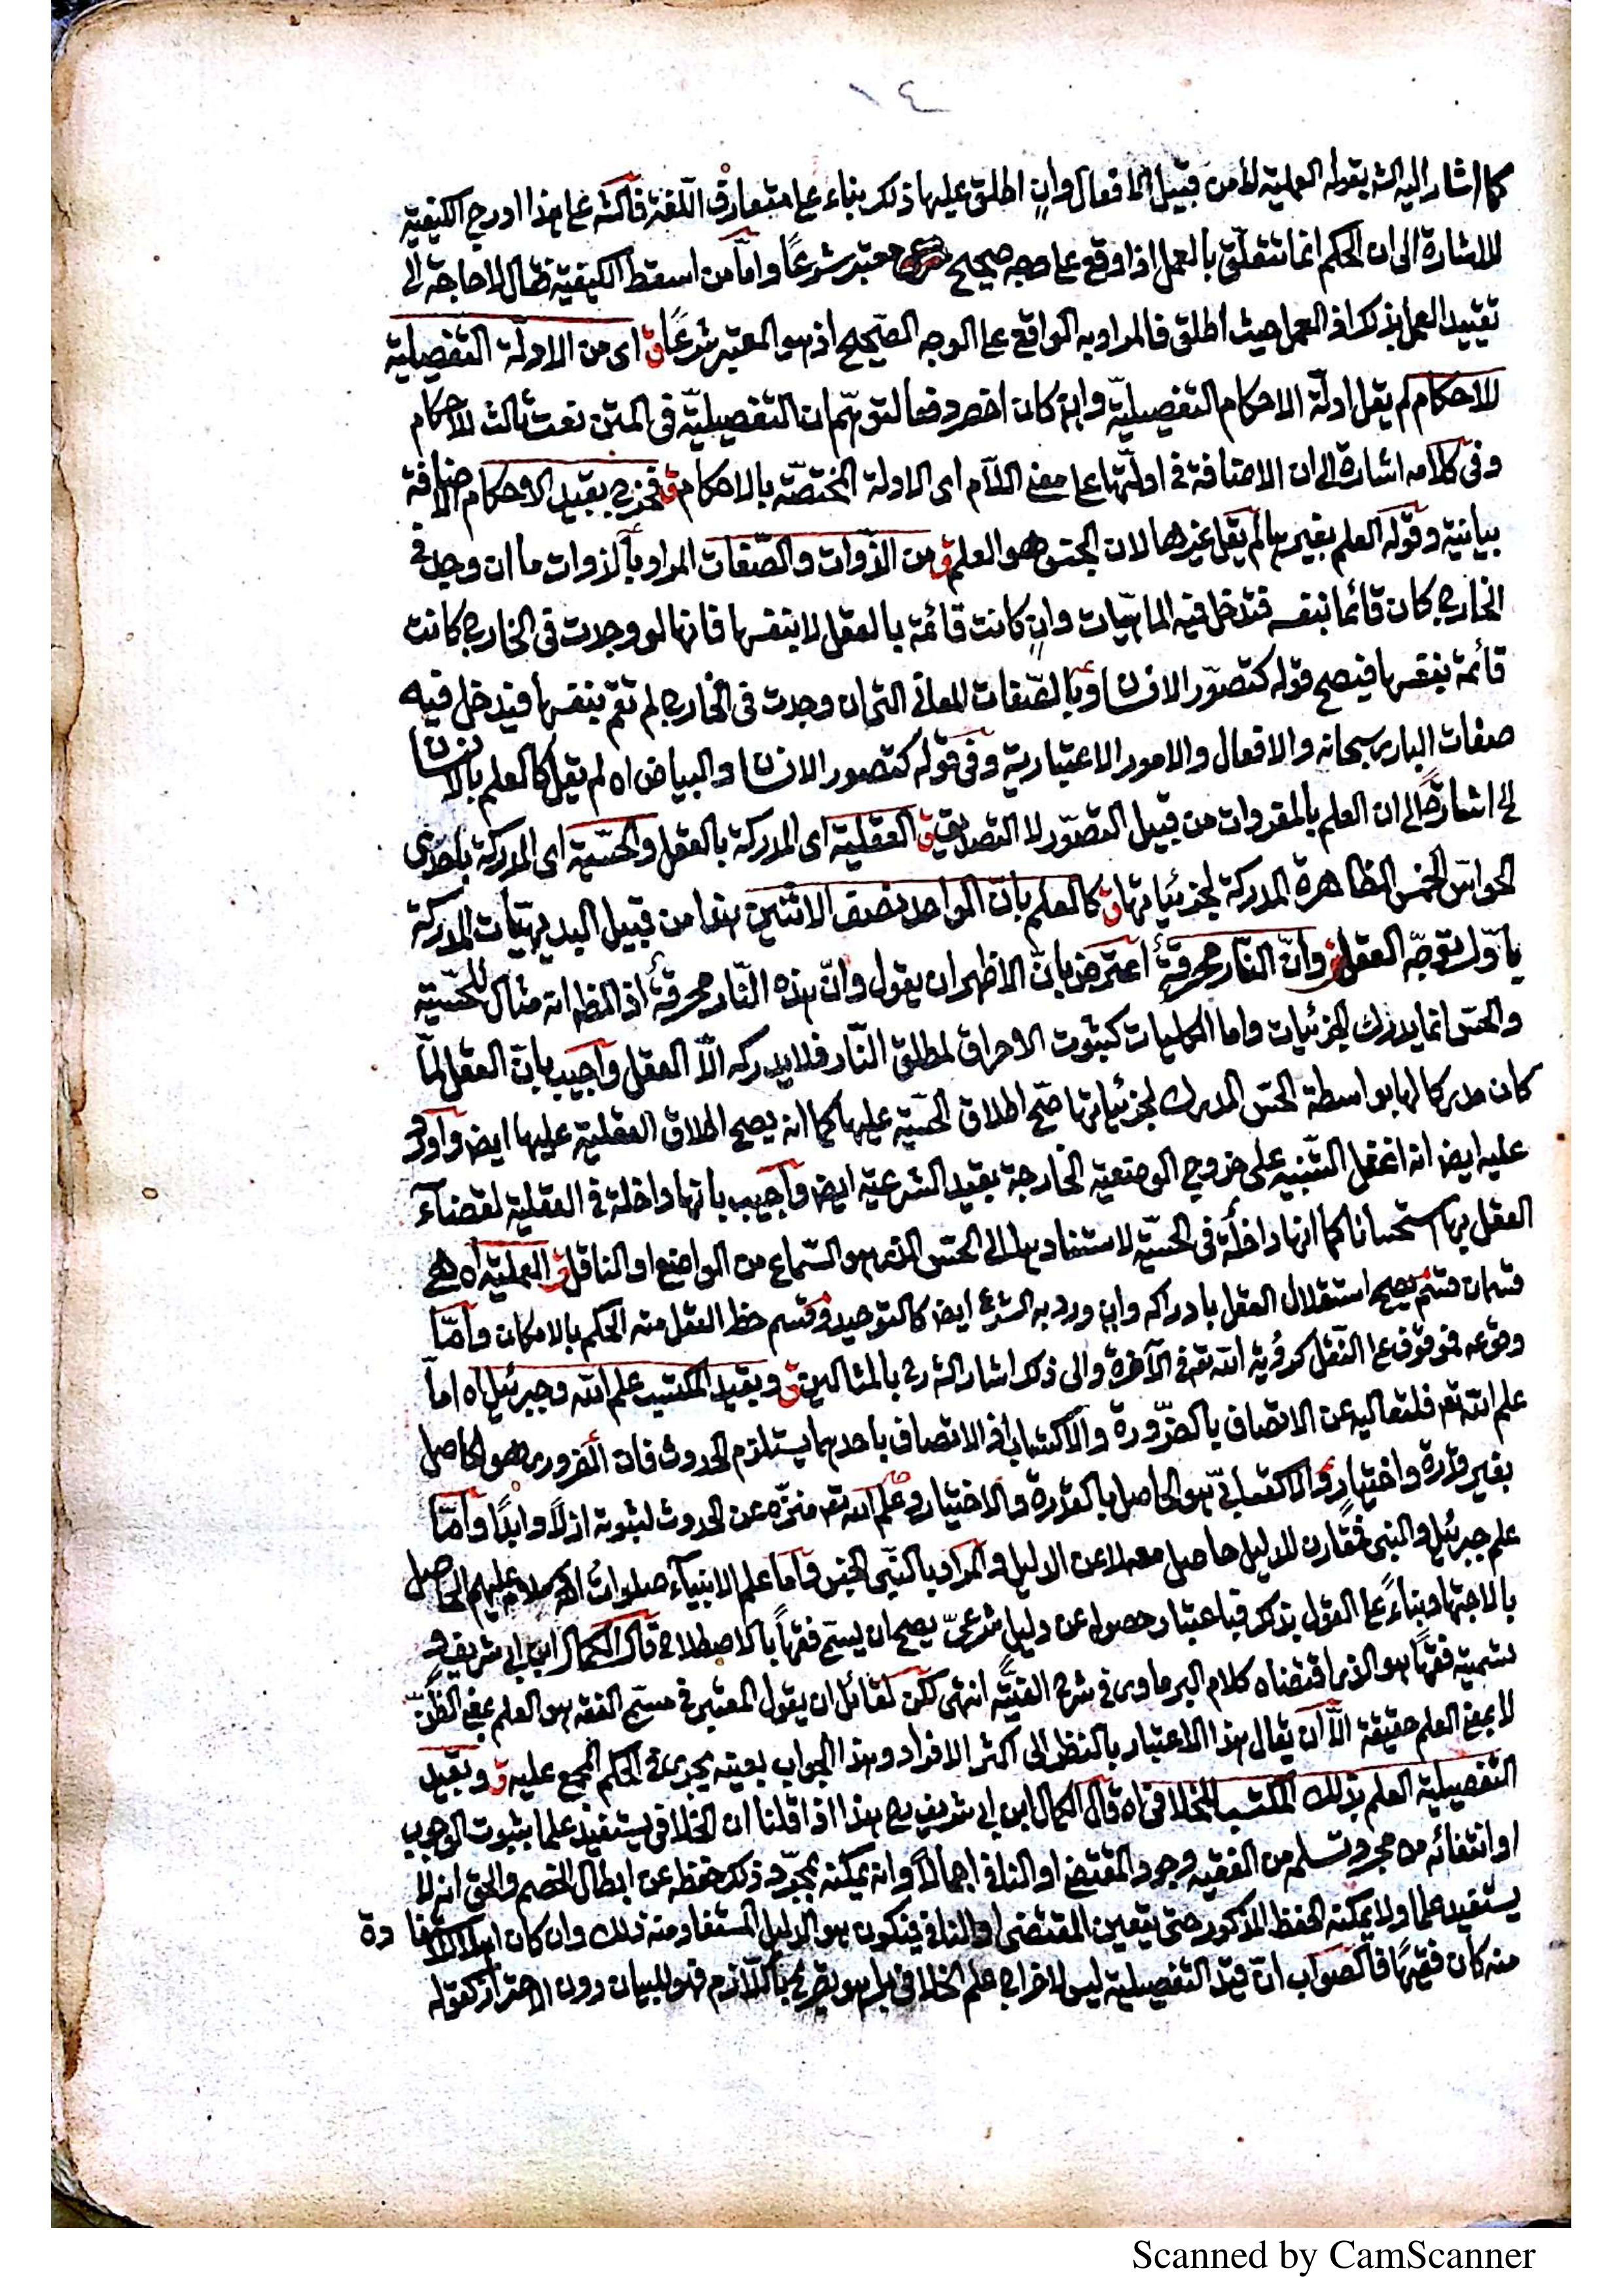 ١٤
كما اشار اليه الشه بقوله العملية لا من قبيل الافعال وان اطلق عليها ذلك بناء على متعارف اللغة فالشه على هذا ادرج الكيفية
للاشارة الى ان الحكم انما تتعلّق بالعمل اذا وقع على وجه صحيح معتبر شرعًا وامّا من اسقط الكيفية فقال لا حاجة الى
تقييد العمل بذلك اذ العمل حيث اطلق فالمراد به الواقع على الوجه الصّحيح اذ هو المعتبر شرعًا ق اى من الادلّة التفصيلية
للاحكام لم يقل ادلّة الاحكام التفصيليّة وان كان اخصر دفعا لتوهّم ان التفصيليّة فى المتن نعت ثالث للاحكام
وفى كلامه اشارة الى ان الاضافة فى ادلّتها على معنى اللّام اى الادلة المختصّة بالاحكام ق فخرج بقيد الاحكام الاضافة
بيانية وقوله العلم بغيرها لم يقل غيرها لان الجنس هو العلم ق من الذّوات والصّفات المراد بالذوات ما ان وجد فى
الخارج كان قائما بنفسه فتدخل فيه الماهيّات وان كانت قائمة بالعقل لا بنفسها فانها لو وجدت فى الخارج كانت
قائمة بنفسها فيصح قوله كتصوّر الانسان وبالصّفات المعانى التى ان وجدت فى الخارج لم تقم بنفسها فيدخل فيه
صفات البارى سبحانه والافعال والامور الاعتبارية وفى قوله كتصور الانسان والبياض اه لم يقل كالعلم بالانسان
الخ اشارةً الى ان العلم بالمفردات من قبيل التصوّر لا التصديق ق العقلية اى المدركة بالعقل والحسّية اى المدركة باحدى
الحواسّ الخمس الظاهرة المدركة لجزئياتها ق كالعلم بانّ الواحد نصف الاثنين هذا من قبيل البديهيّات المدركة
باوّل توجّه العقل ق وانّ النّار محرقة اعترض بانّ الاظهر ان يقول وانّ هذه النّار محرقة اذ الظ انه مثال للحسّية
والحسّ انما يدرك الجزئيات واما الكليات كثبوت الاحراق لمطلق النّار فلا يدركه الّا العقل واجيب بانّ العقل لمّا
كان مدركا لها بواسطة الحسّ المدرك لجزئياتها صحّ اطلاق الحسّية عليها كما انه يصح اطلاق العقلية عليها ايض واورد
عليه ايض انه اغفل التنبيه على خروج الوضعية الخارجة بقيد الشرعية ايض واجيب بانها داخلة فى العقلية لقضاء
العقل بها استحسانا كما انها داخلة فى الحسّية لاستنادها الى الحسّ الذى هو السّماع من الواضع او الناقل ق العملية اه هى
قسمان قسم يصح استقلال العقل بادراكه وان ورد به الشرع ايض كالتوحيد وقسم حظ العقل منه الحكم بالامكان وامّا
وقوعه فموقوف على النّقل كرؤية الله تع فى الآخرة والى ذلك اشار الشه رح بالمثالين ق وبقيد المكتسب علم الله وجبرئيل اه امّا
علم الله تع فلتعاليه عن الاتصاف بالضرورة والاكتساب اذ الاتصاف باحدهما يستلزم الحدوث فان الضرورى هو الحاصل
بغير قدرة واختيار والاكتسابىّ هو الحاصل بالقدرة والاختيار وعلم الله تع منزّه عن الحدوث لثبوته ازلًا وابدًا وامّا
علم جبرئيل والنبى فمقارن للدليل حاصل معه لا عن الدليل والمراد بالنّبى الجنس وامّا علم الانبياء صلوات الله وسلامه عليهم الحاصل
بالاجتهاد بناءً على القول بذلك فباعتبار حصوله عن دليل شرعىّ يصح ان يسمّى فقهًا بالاصطلاح قال الكمال ابن ابى شريف و
تسميته فقهًا هو الذى اقتضاه كلام البرماوى فى شرح الفيّته انتهى لكن لقائل ان يقول المعتبر فى مسمّى الفقه هو العلم بمعنى الظّنّ
لا بمعنى العلم حقيقة الّا ان يقال هذا الاعتبار بالنظر الى اكثر الافراد وهذا الجواب بعينه يجرى فى الحكم المجمع عليه ق وبقيد
التفصيلية العلم بذلك المكتسب للخلافى اه قال الكمال ابن ابى شريف رح هذا اذا قلنا ان الخلافى يستفيد علما بثبوت الوجوب
او انتفائه من مجرد تسلمه من الفقيه وجود المقتضى او النافى اجمالًا وانه يمكنه بمجرّد ذلك حفظه عن ابطال الخصم والحق انه لا
يستفيد علما ولا يمكنه الحفظ المذكور حتى يتعين المقتضى او النافى فيكون هو الدليل المستفاد منه ذلك وان كان اهلا للاستفادة
منه كان فقيهًا فالصواب انّ قيد التفصيلية ليس لاخراج علم الخلافى بل هو تصريح باللّازم فهو للبيان دون الاحتراز كقوله
Scanned by CamScanner